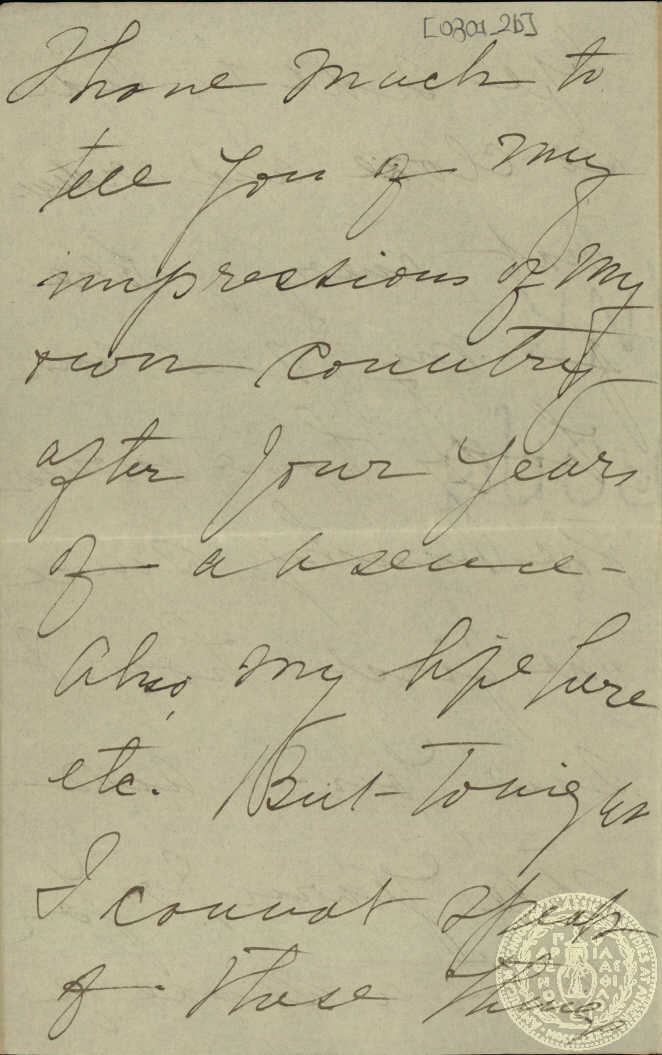 [0301_2b]
I have much to
tell you of my
impressions of my
own country
after four years
of absence -
Also, my life here
etc. But - Tonight
I cannot speak
of these things